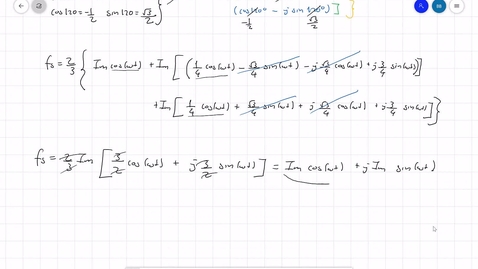 cos120=-1/2 sin120=√3/2 }
(cos120 - j sin120)] }
-1/2 √3/2
fs = 2/3 { Im cos(wt) + Im [ (1/4 cos(wt) - √3/4 sin(wt) - j √3/4 cos(wt) + j 3/4 sin(wt) ]
+ Im [ 1/4 cos(wt) + √3/4 sin(wt) + j √3/4 cos(wt) + j 3/4 sin(wt) ] }
fs = 2/3 Im [ 3/2 cos(wt) + j 3/2 sin(wt) ] = Im cos(wt) + j Im sin(wt)